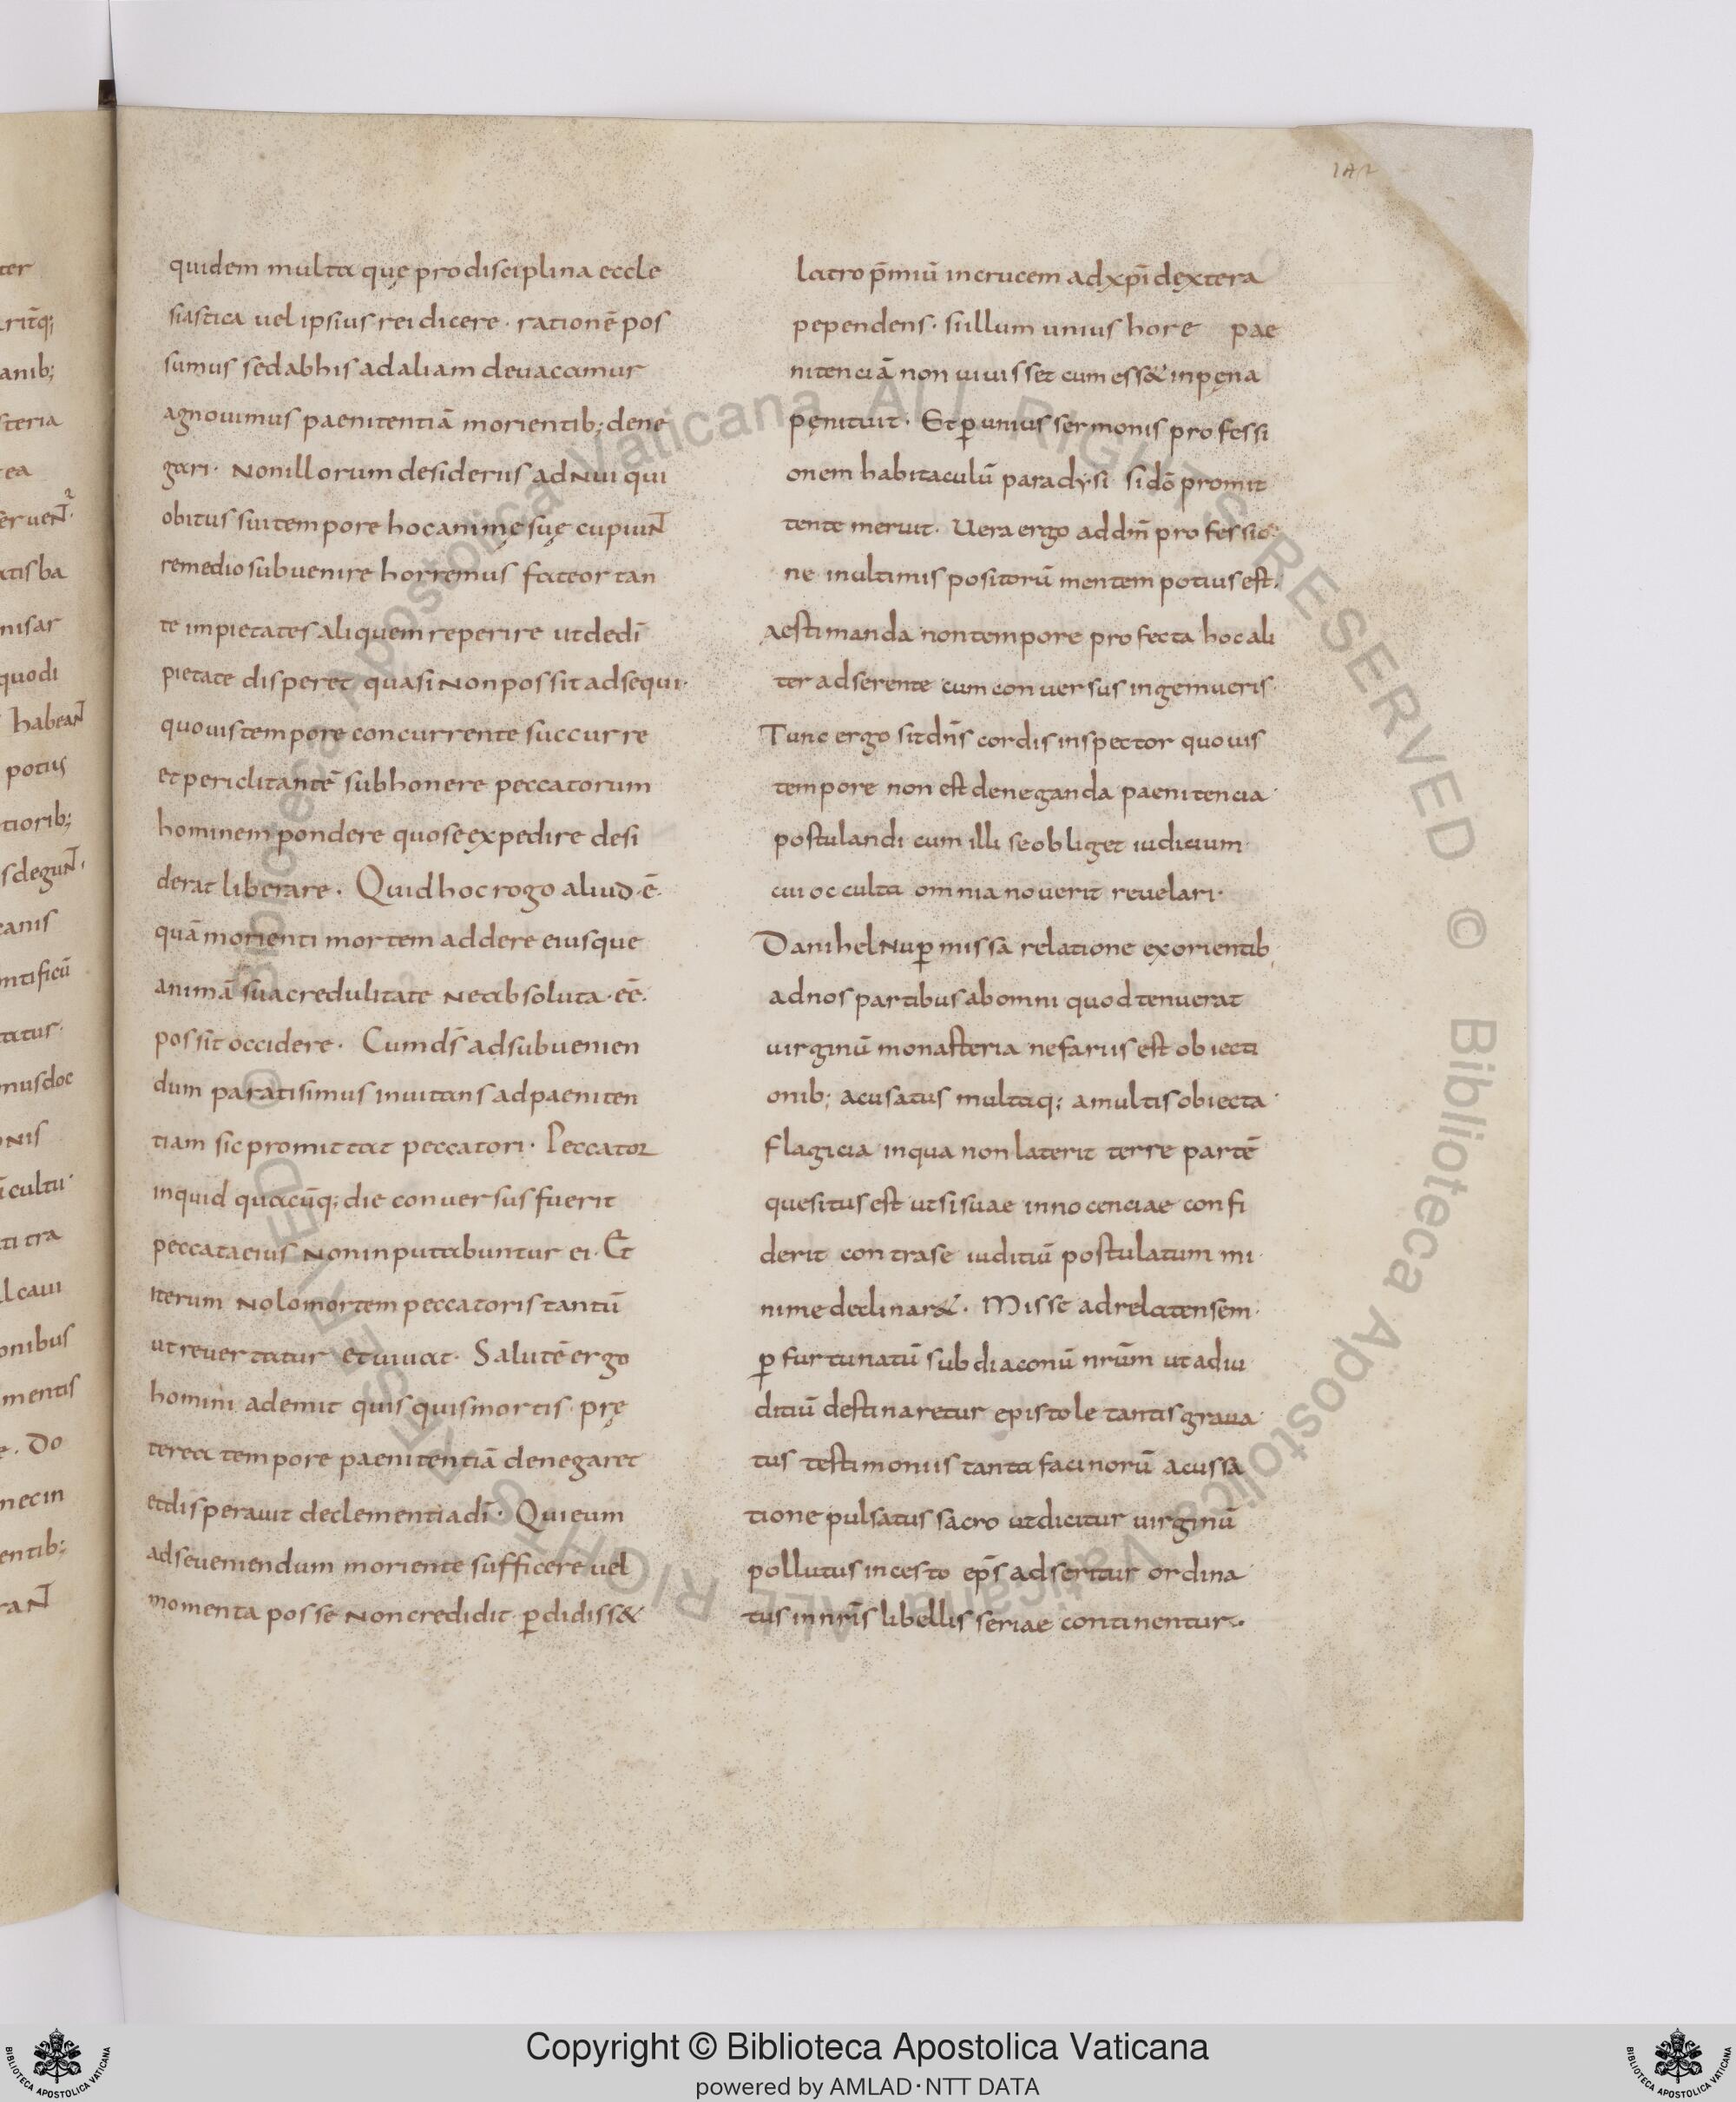 142
quidem multa quę pro disciplina eccle
siastica uel ipsius rei dicere · rationē pos
sumus sed ab his ad aliam deuacamur
agnouimus paenitentiā morientib; dene
gari · Non illorum desideriis adnui qui
obitus sui tempore hoc animę suę cupiunt
remedio subuenire horremus fateor tan
te impietates aliquem reperire ut de dī
pietate disperet quasi non possit adsequi ·
quouis tempore concurrente succurre
et periclitantē sub honere peccatorum
hominem pondere quo se expedire desi
derat liberare · Quid hoc rogo aliud · ē ·
quā morienti mortem addere eiusque
animā sua credulitate ne absoluta · eē ·
possit occidere · Cum ds̄ ad subuenien
dum paratisimus inuitans ad paeniten
tiam sic promittat peccatori · Peccator
inquid quacūq; die conuersus fuerit
peccata eius non inputabuntur ei · Et
iterum Nolo mortem peccatoris tantū
ut reuertatur et uiuat · Salutē ergo
homini ademit quisquis mortis · prę
terea tempore paenitentiā denegaret
et disperauit de clementia dī · Qui eum
ad seueniendum moriente sufficere uel
momenta posse non credidit · p̱didiss&
latro p̄miū in crucem ad xp̄i dextera
pependens · si illum unius hore pae
nitenciā non uiuisset cum ess& in pęna
pęnituit · Et p̱ unius sermonis professi
onem habitaculū paradysi si dō promit
tente meruit · Uera ergo ad dn̄m professio
ne in ultimis positorū mentem potius est ·
aestimanda non tempore profecta hoc ali
ter adserente cum conuersus ingemueris ·
Tunc ergo sit dn̄s cordis inspector quouis
tempore non est deneganda paenitencia ·
postulandi cum illi se obliget iudicium ·
cui occulta omnia nouerit reuelari ·
Danihel nup̱ missā relatione ex orientib
ad nos partibus ab omni quod tenuerat
uirginū monasteria nefariis est obiecti
onib; acusatus multaq; a multis obiecta ·
flagicia in qua non laterit terre partē
quesitus est ut si suae innocenciae confi
derit contra se iuditiū postulatum mi ·
nime declinar& · Misse ad relatensem ·
p̱ furtunatū subdiaconū nr̄um ut ad iu
ditiū destinaretur epistole tantis graua ·
tus testimoniis tanta facinorū acussa
tione pulsatus sacro ut dicitur uirginū
pollutus incesto eps̄ adseritur ordina ·
tus in nr̄is libellis seriae continentur ·
Copyright © Biblioteca Apostolica Vaticana
powered by AMLAD·NTT DATA